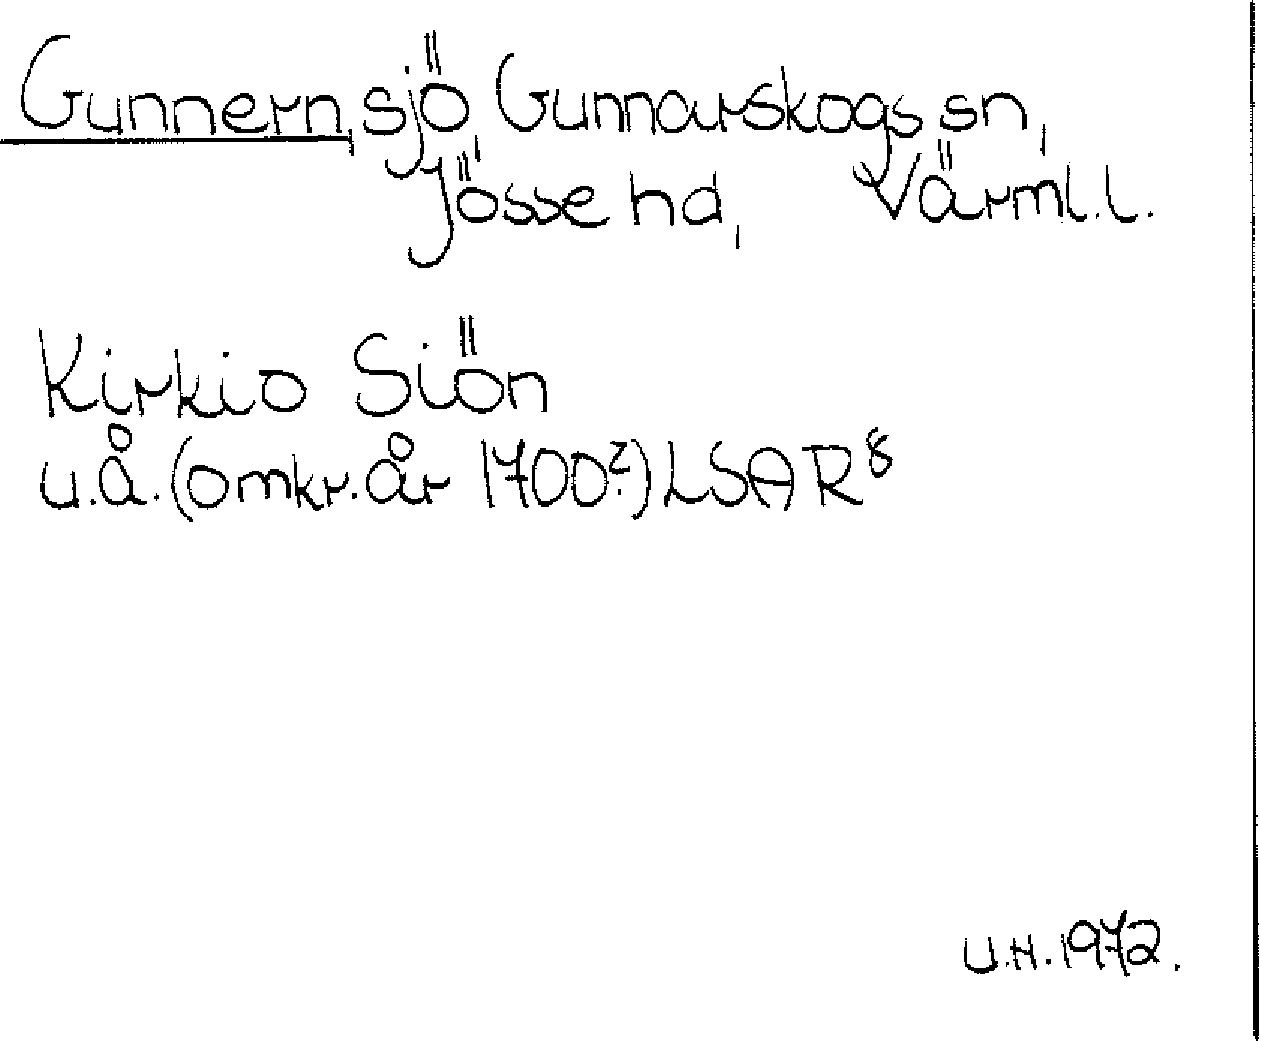 Gunnern, sjö, Gunnarskogs sn,
Jösse hd, Värml.l.
Kirkio Siön
u.å. (omkr. år 1700?) LSA R8
U.H. 1972.